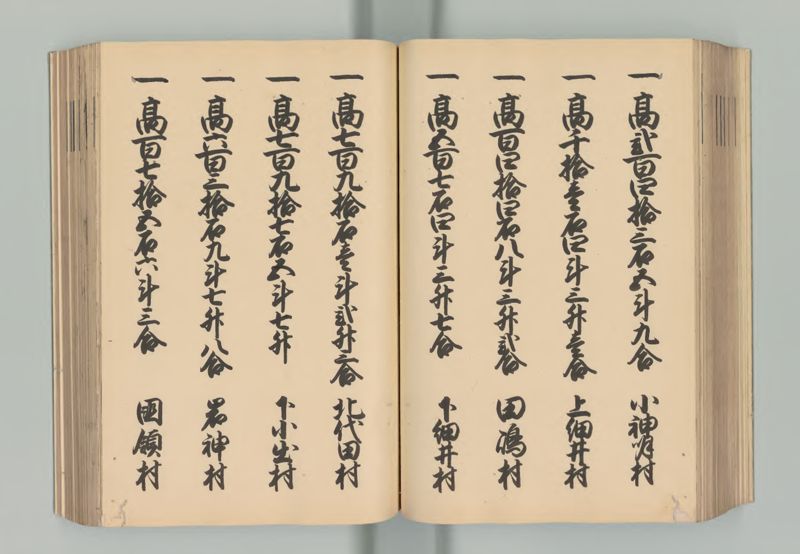 一 高弐百四拾三石五斗九合 小神明村
一 高千拾壱石四斗三升壱合 上細井村
一 高百四拾四石八斗三升弐合 田嶋村
一 高五百七石四斗三升七合 下細井村
一 高七百九拾石壱斗弐升三合 北代田村
一 高七百九拾七石五斗七升 下小出村
一 高六百三拾石九斗七升八合 岩神村
一 高百七拾五石六斗三合 國領村